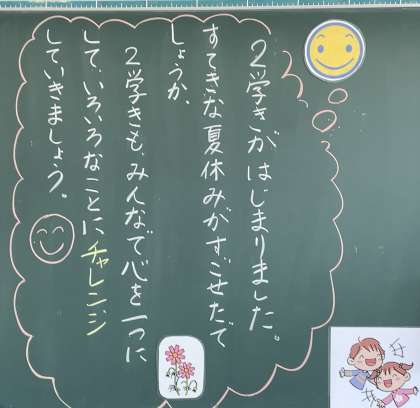 2学きがはじまりました。
すてきな夏休みがすごせたで
しょうか、
2学きも、みんなで心を一つに
して、いろいろなことにチャレンジ
していきましょう。